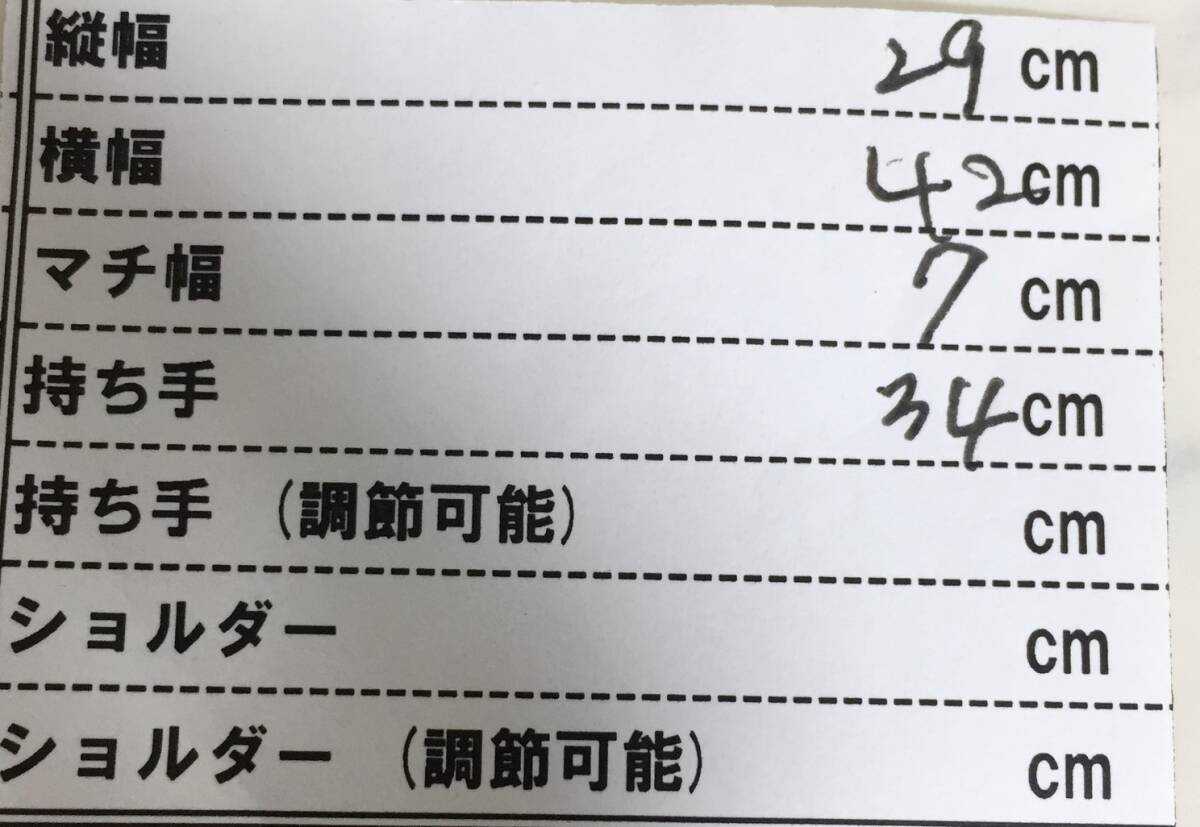 縦幅 29 cm
横幅 42 cm
マチ幅 7 cm
持ち手 34 cm
持ち手 (調節可能) cm
ショルダー cm
ショルダー (調節可能) cm